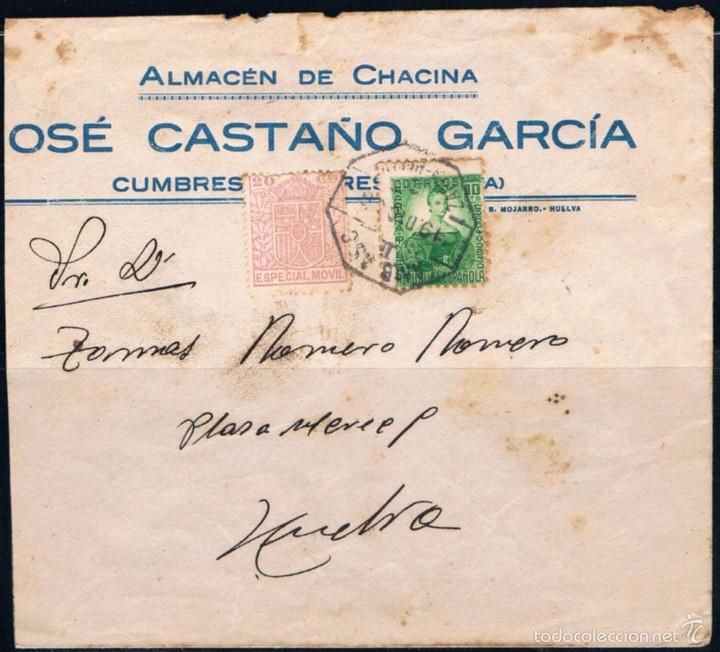 ALMACÉN DE CHACINA
OSÉ CASTAÑO GARCÍA
CUMBRES RES A)
R. MOJARRO.- HUELVA
20 C
ESPECIAL MOVIL
CORREOS 10
ESPAÑOLA
Sr. Dn
Tommas Romero Romero
Plaza Merced
Huelva
todocoleccion.net